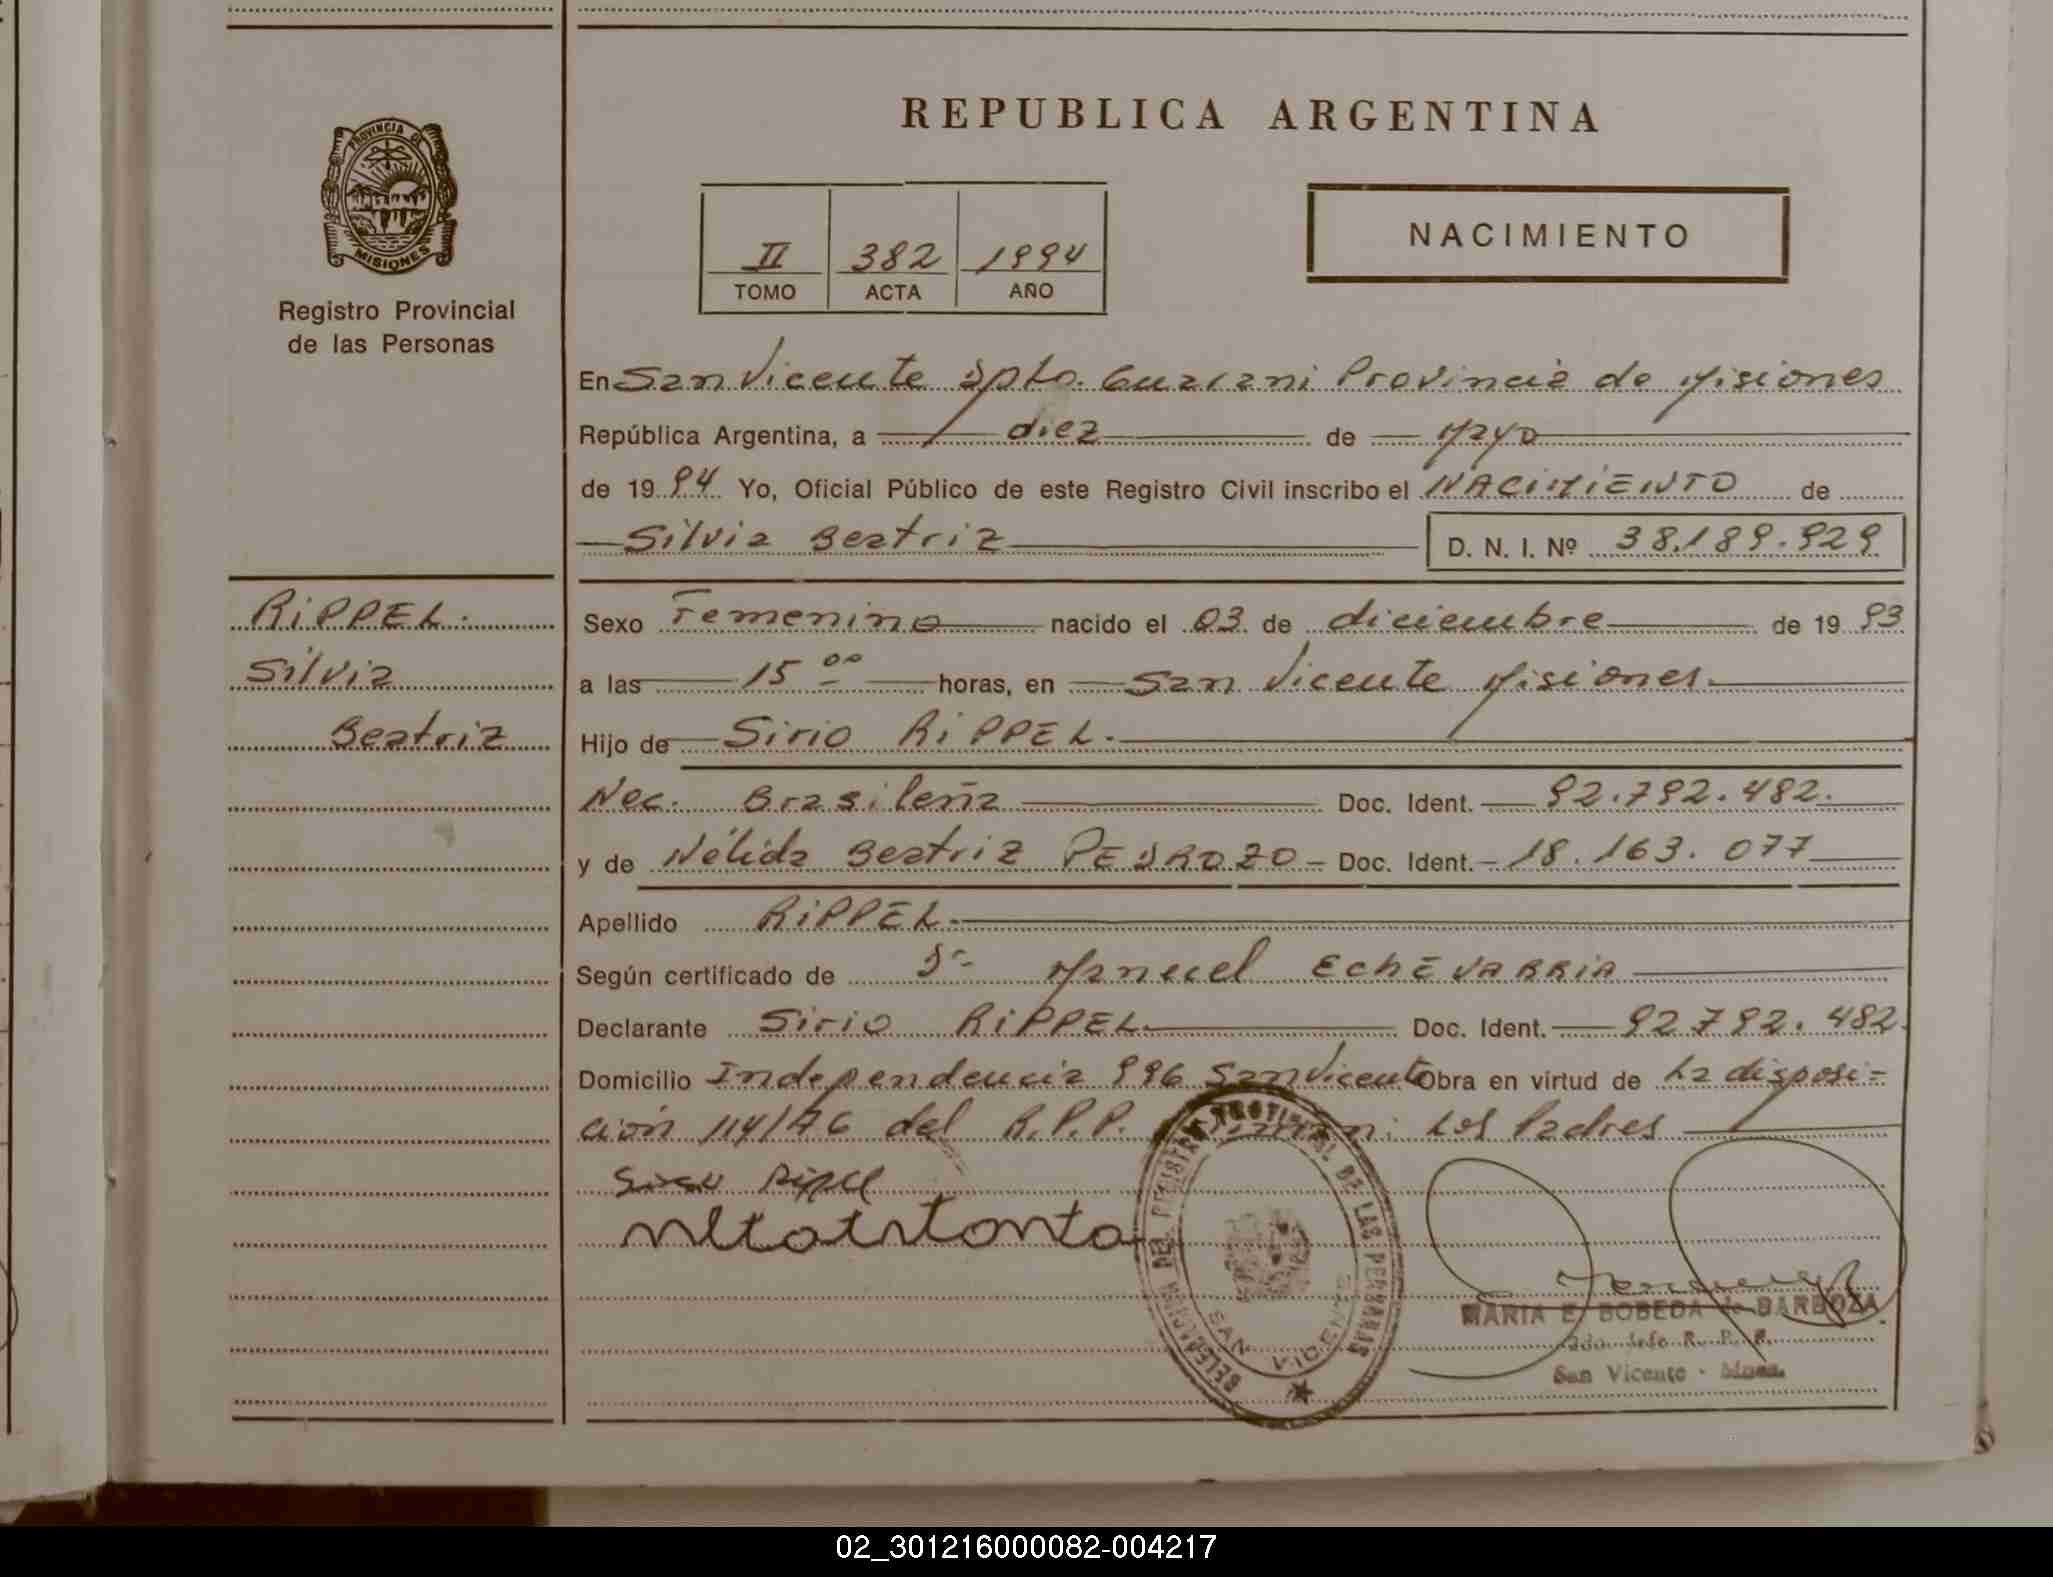 REPUBLICA ARGENTINA
PROVINCIA DE MISIONES
Registro Provincial
de las Personas
II 382 1994
TOMO ACTA AÑO
NACIMIENTO
En San Vicente Dpto. Guaraní Provincia de Misiones
República Argentina, a diez de Mayo
de 1994 Yo, Oficial Público de este Registro Civil inscribo el NACIMIENTO de
Silvia Beatriz D. N. I. Nº 38.189.929
RIPPEL.
Silvia
Beatriz
Sexo Femenino nacido el 03 de diciembre de 1993
a las 15 00 horas, en San Vicente Misiones.
Hijo de Sirio RIPPEL.
Nac. Brasileña Doc. Ident. 92.792.482.
y de Nélida Beatriz PEDROZO Doc. Ident. 18.163.077
Apellido RIPPEL.
Según certificado de Dr. Manuel ECHEVARRIA
Declarante Sirio RIPPEL Doc. Ident. 92.792.482.
Domicilio Independencia 996 San Vicente Obra en virtud de la disposi-
ción 114/76 del R.P.P. Los Padres
DELEGACION DEL REGISTRO PROVINCIAL DE LAS PERSONAS
SAN VICENTE
MARIA E. BOBEDA de BARBOZA
San Vicente - Mnes.
02_301216000082-004217